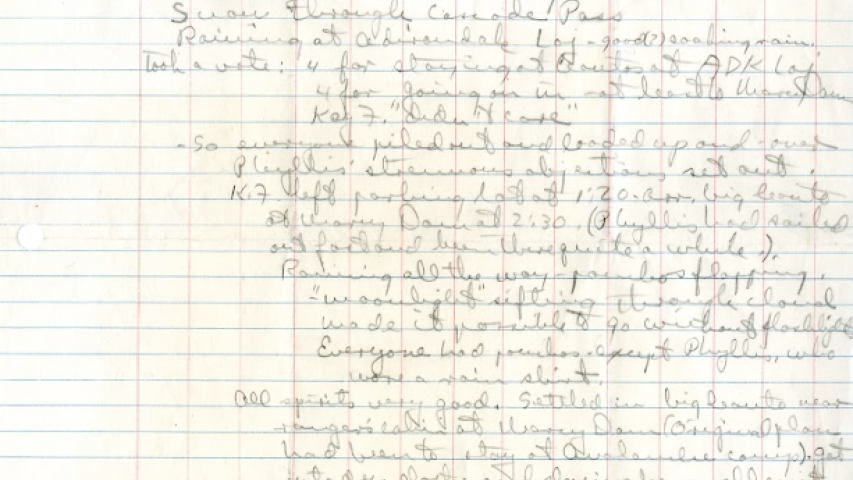 Snow through Cascade Pass
Raining at Adirondak Loj - good(?) soaking rain.
Took a vote: 4 for staying at leantos at ADK Loj
4 for going on in - at least to Marcy Dam
Kay F. "didn't care"
- So everyone piled out and loaded up and - over
Phyllis' strenuous objections, set out.
K.F. left parking lot at 1:20 a.m. big leanto
at Marcy Dam at 2:30 (Phyllis had sailed
out fast and been there quite a while.).
Raining all the way - ponchos flapping.
- "moonlight" sifting through cloud
made it possible to go without flashlight
Everyone had ponchos except Phyllis, who
wore a rain shirt.
All spirits very good. Settled in big leanto near
ranger's cabin at Marcy Dam (Original plan
had been to stay at Avalanche camp). got